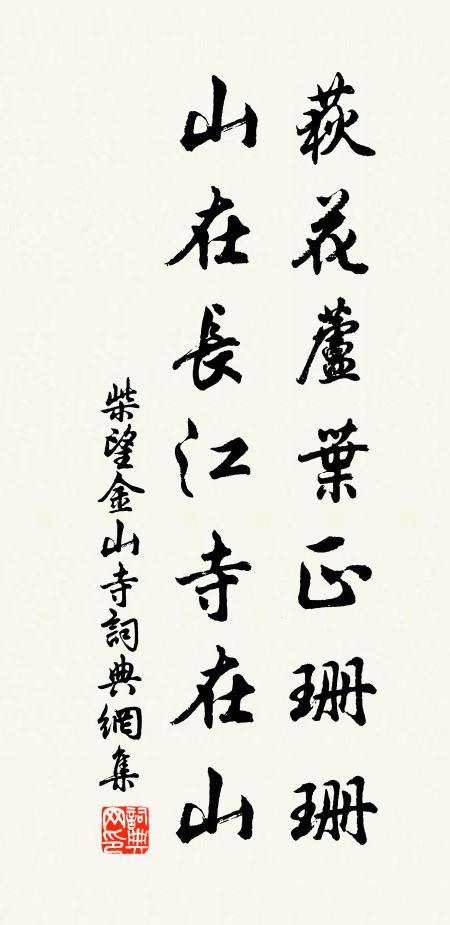 萩花蘆葉正珊珊
山在長江寺在山
柴望金山寺詞典網集
詞典网印